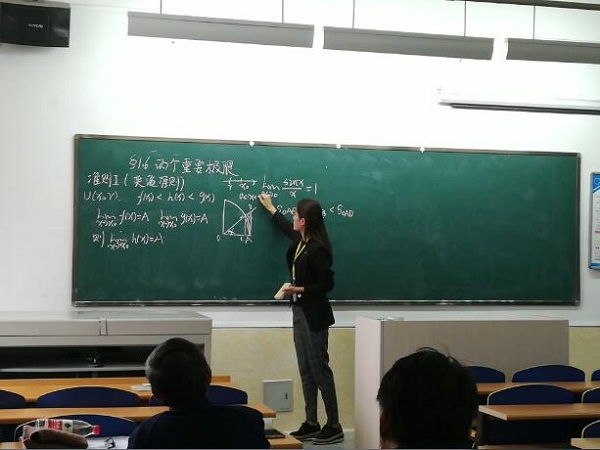 §1.6 两个重要极限
准则I (夹逼准则)
U(x₀,r) f(x) < h(x) < g(x)
lim x→x₀ f(x)=A lim x→x₀ g(x)=A
则 lim x→x₀ h(x)=A
x₀
lim x→0 sinx/x = 1
0<x<
< S